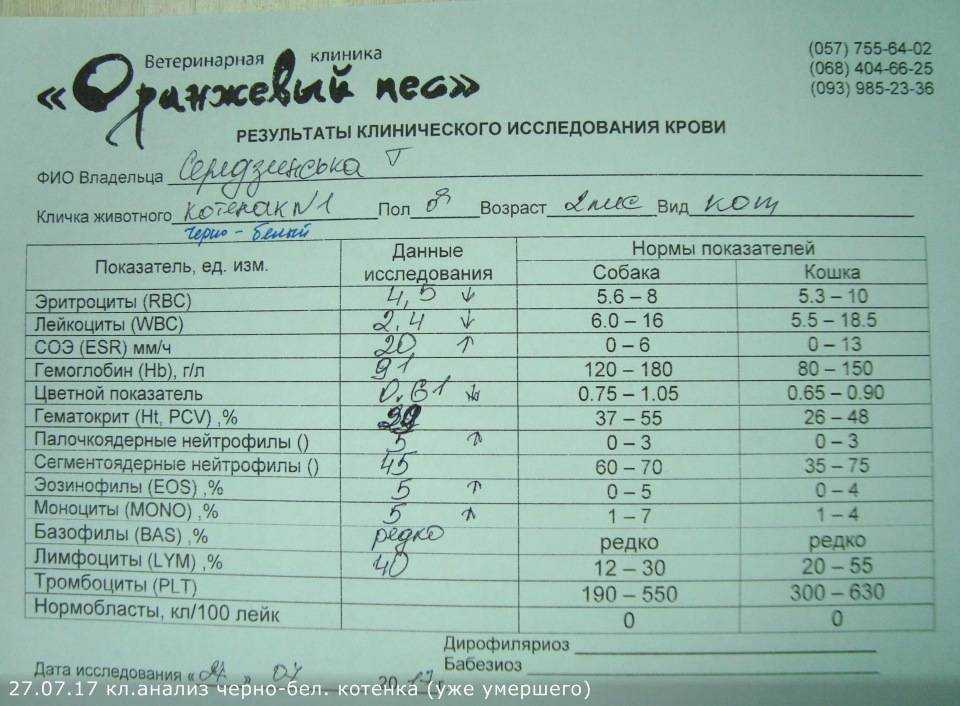 Ветеринарная клиника
«Оранжевый пес»
(057) 755-64-02
(068) 404-66-25
(093) 985-23-36
РЕЗУЛЬТАТЫ КЛИНИЧЕСКОГО ИССЛЕДОВАНИЯ КРОВИ
ФИО Владельца Середзинська Т
Кличка животного котенак №1 Пол ♂ Возраст 2 мес Вид кот
черно - белый
Показатель, ед. изм. Данные исследования Нормы показателей
Собака Кошка
Эритроциты (RBC) 4,5 ↓ 5.6 – 8 5.3 – 10
Лейкоциты (WBC) 2.4 ↓ 6.0 – 16 5.5 – 18.5
СОЭ (ESR) мм/ч 20 ↑ 0 – 6 0 – 13
Гемоглобин (Hb), г/л 91 120 – 180 80 – 150
Цветной показатель 0.61 ↓ 0.75 – 1.05 0.65 – 0.90
Гематокрит (Ht, PCV) ,% 29 37 – 55 26 – 48
Палочкоядерные нейтрофилы () 5 ↑ 0 – 3 0 – 3
Сегментоядерные нейтрофилы () 45 60 – 70 35 – 75
Эозинофилы (EOS) ,% 5 ↑ 0 – 5 0 – 4
Моноциты (MONO) ,% 5 ↑ 1 – 7 1 – 4
Базофилы (BAS) ,% редко редко редко
Лимфоциты (LYM) ,% 40 12 – 30 20 – 55
Тромбоциты (PLT) 190 – 550 300 – 630
Нормобласты, кл/100 лейк 0 0
Дирофиляриоз
Бабезиоз
Дата исследования «27» 07 2017
27.07.17 кл.анализ черно-бел. котенка (уже умершего)